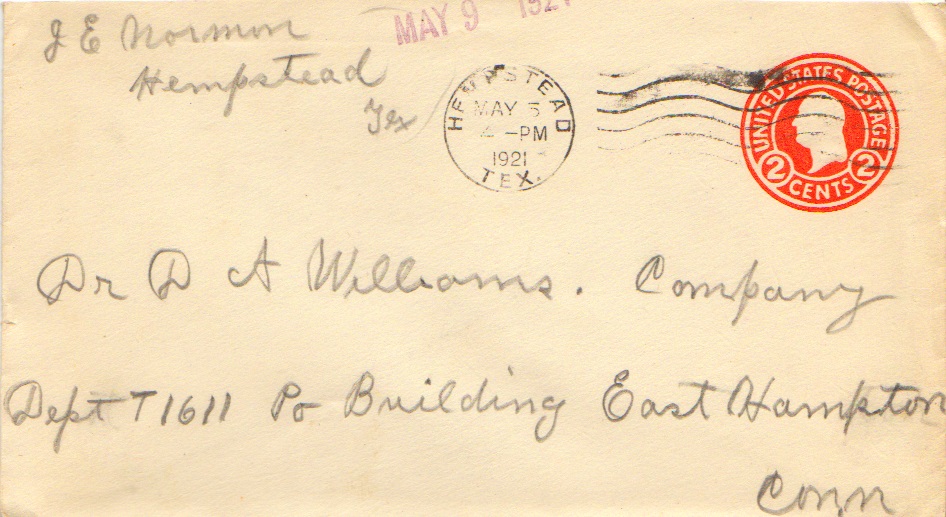 J E Normon
Hempstead
Tex
MAY 9 1921
HEMPSTEAD
MAY 5
4-PM
1921
TEX.
UNITED STATES POSTAGE
2 CENTS 2
Dr D A Williams. Company
Dept T1611 Po Building East Hampton
Conn